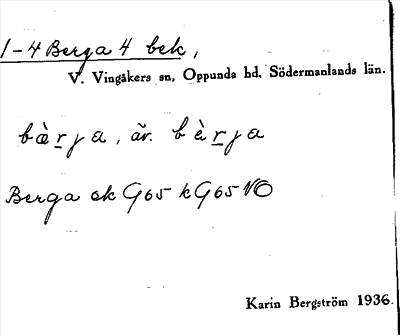 1-4 Berga 4 bek,
V. Vingåkers sn, Oppunda hd. Södermanlands län.
bæ̀rja, äv. bèrja
Berga ek G65 kG65 NO
Karin Bergström 1936.